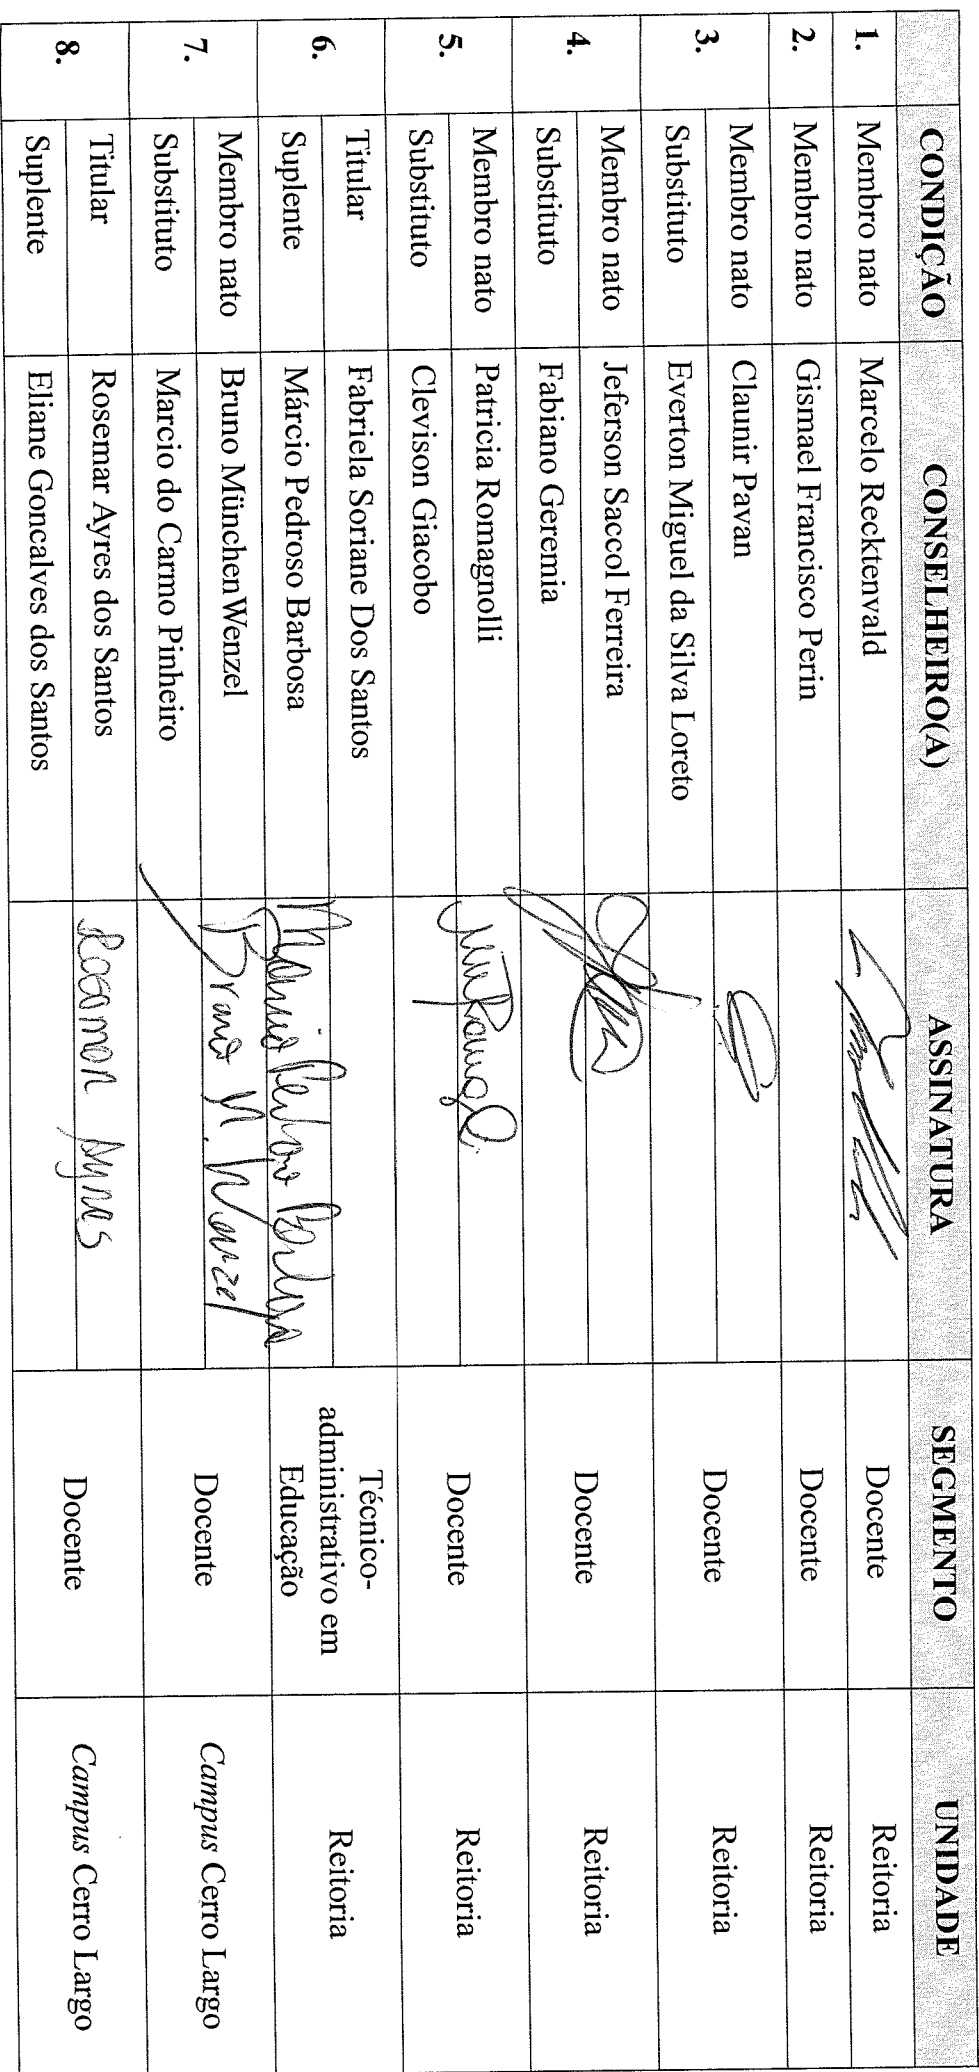 CONDIÇÃO CONSELHEIRO(A) ASSINATURA SEGMENTO UNIDADE
1. Membro nato Marcelo Recktenvald Docente Reitoria
2. Membro nato Gismael Francisco Perin Docente Reitoria
3. Membro nato Claunir Pavan Docente Reitoria
Substituto Everton Miguel da Silva Loreto
4. Membro nato Jeferson Saccol Ferreira Docente Reitoria
Substituto Fabiano Geremia
5. Membro nato Patricia Romagnolli Docente Reitoria
Substituto Clevison Giacobo
6. Titular Fabriela Soriane Dos Santos Técnico-
administrativo em
Educação Reitoria
Suplente Márcio Pedroso Barbosa Marcio Pedroso Barbosa
7. Membro nato Bruno MünchenWenzel Bruno M. Wenzel Docente Campus Cerro Largo
Substituto Marcio do Carmo Pinheiro
8. Titular Rosemar Ayres dos Santos Rosemar Ayres Docente Campus Cerro Largo
Suplente Eliane Goncalves dos Santos